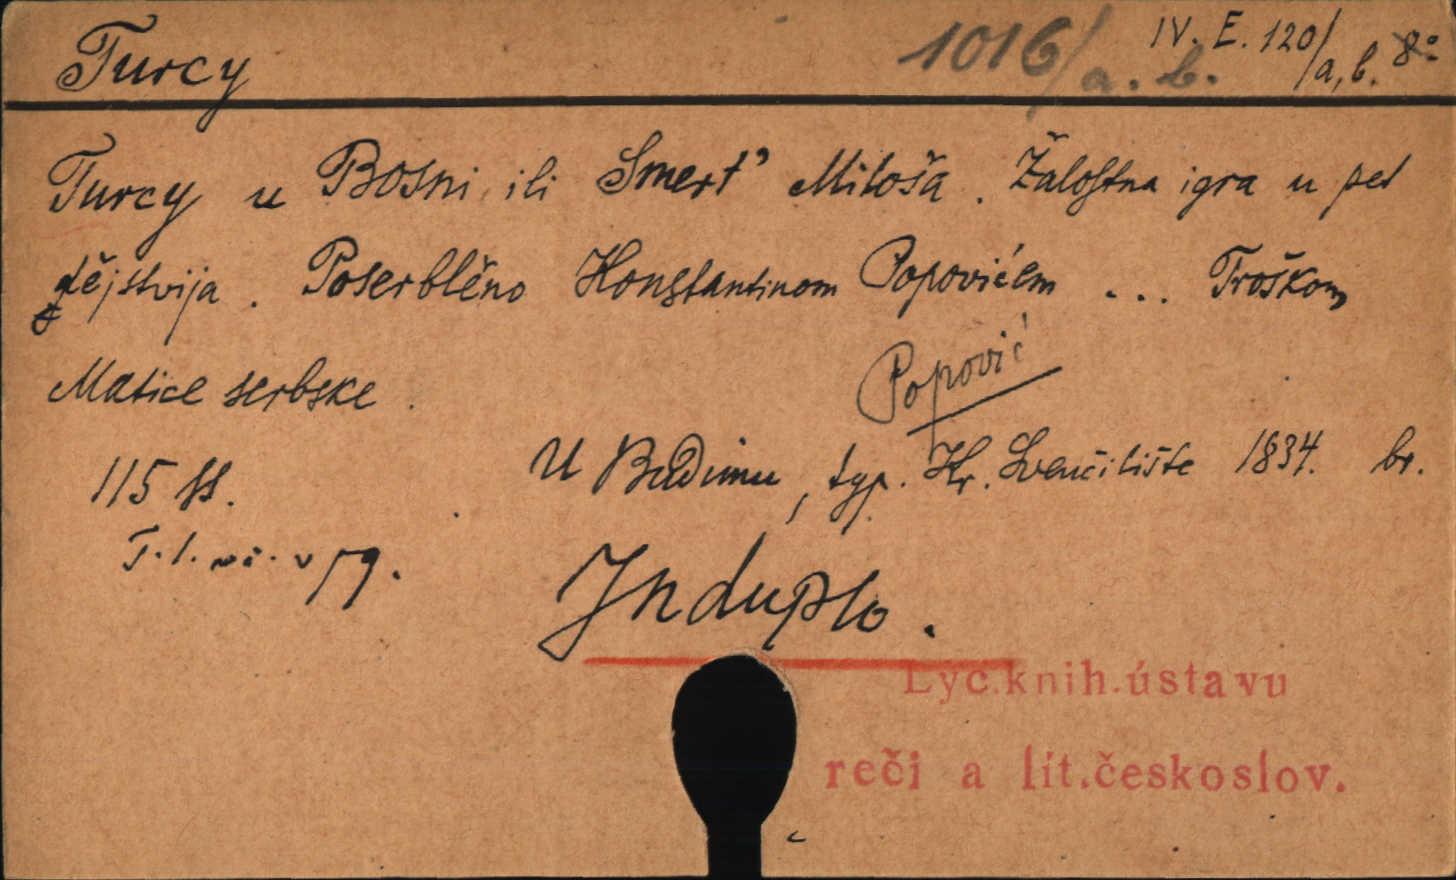 Turcy
1016/a.b.
IV. E. 120/a,b. 8°
Turcy u Bosni ili Smert' Miloša. Žalostna igra u pet
dějstvija. Poserblěno Konstantinom Popovićem ... Troškom
Matice serbske.
Popović
115 ss.
U Budimu, typ. Kr. Svenčilište 1834. br.
In duplo.
Lyc.knih.ústavu
reči a lit.českoslov.